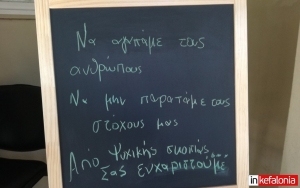 Να αγαπάμε τους
ανθρώπους
Να μην παρατάμε τους
στόχους μας
Από ψυχικής
Σας ευχαριστούμε
inkefalonia